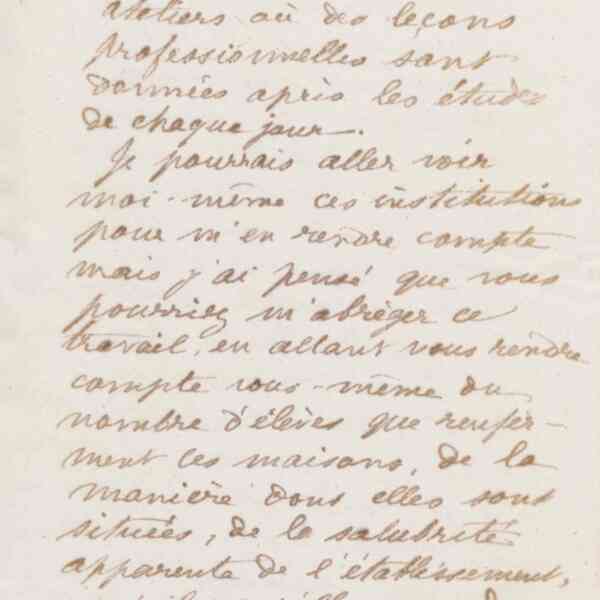 ateliers où des leçons
professionnelles sont
données après les études
de chaque jour.
Je pourrais aller voir
moi-même ces institutions
pour m'en rendre compte
mais j'ai pensé que vous
pourriez m'abréger ce
travail, en allant vous rendre
compte vous-même du
nombre d'élèves que renfer-
ment ces maisons, de la
manière dont elles sont
situées, de la salubrité
apparente de l'établissement,